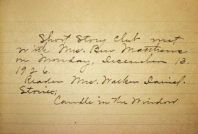 Short Story Club met
with Mrs. Ben Matthews
on Monday, December 13.
1926.
Reader Mrs. Walker Daniel
Stories,
Candle in the Window